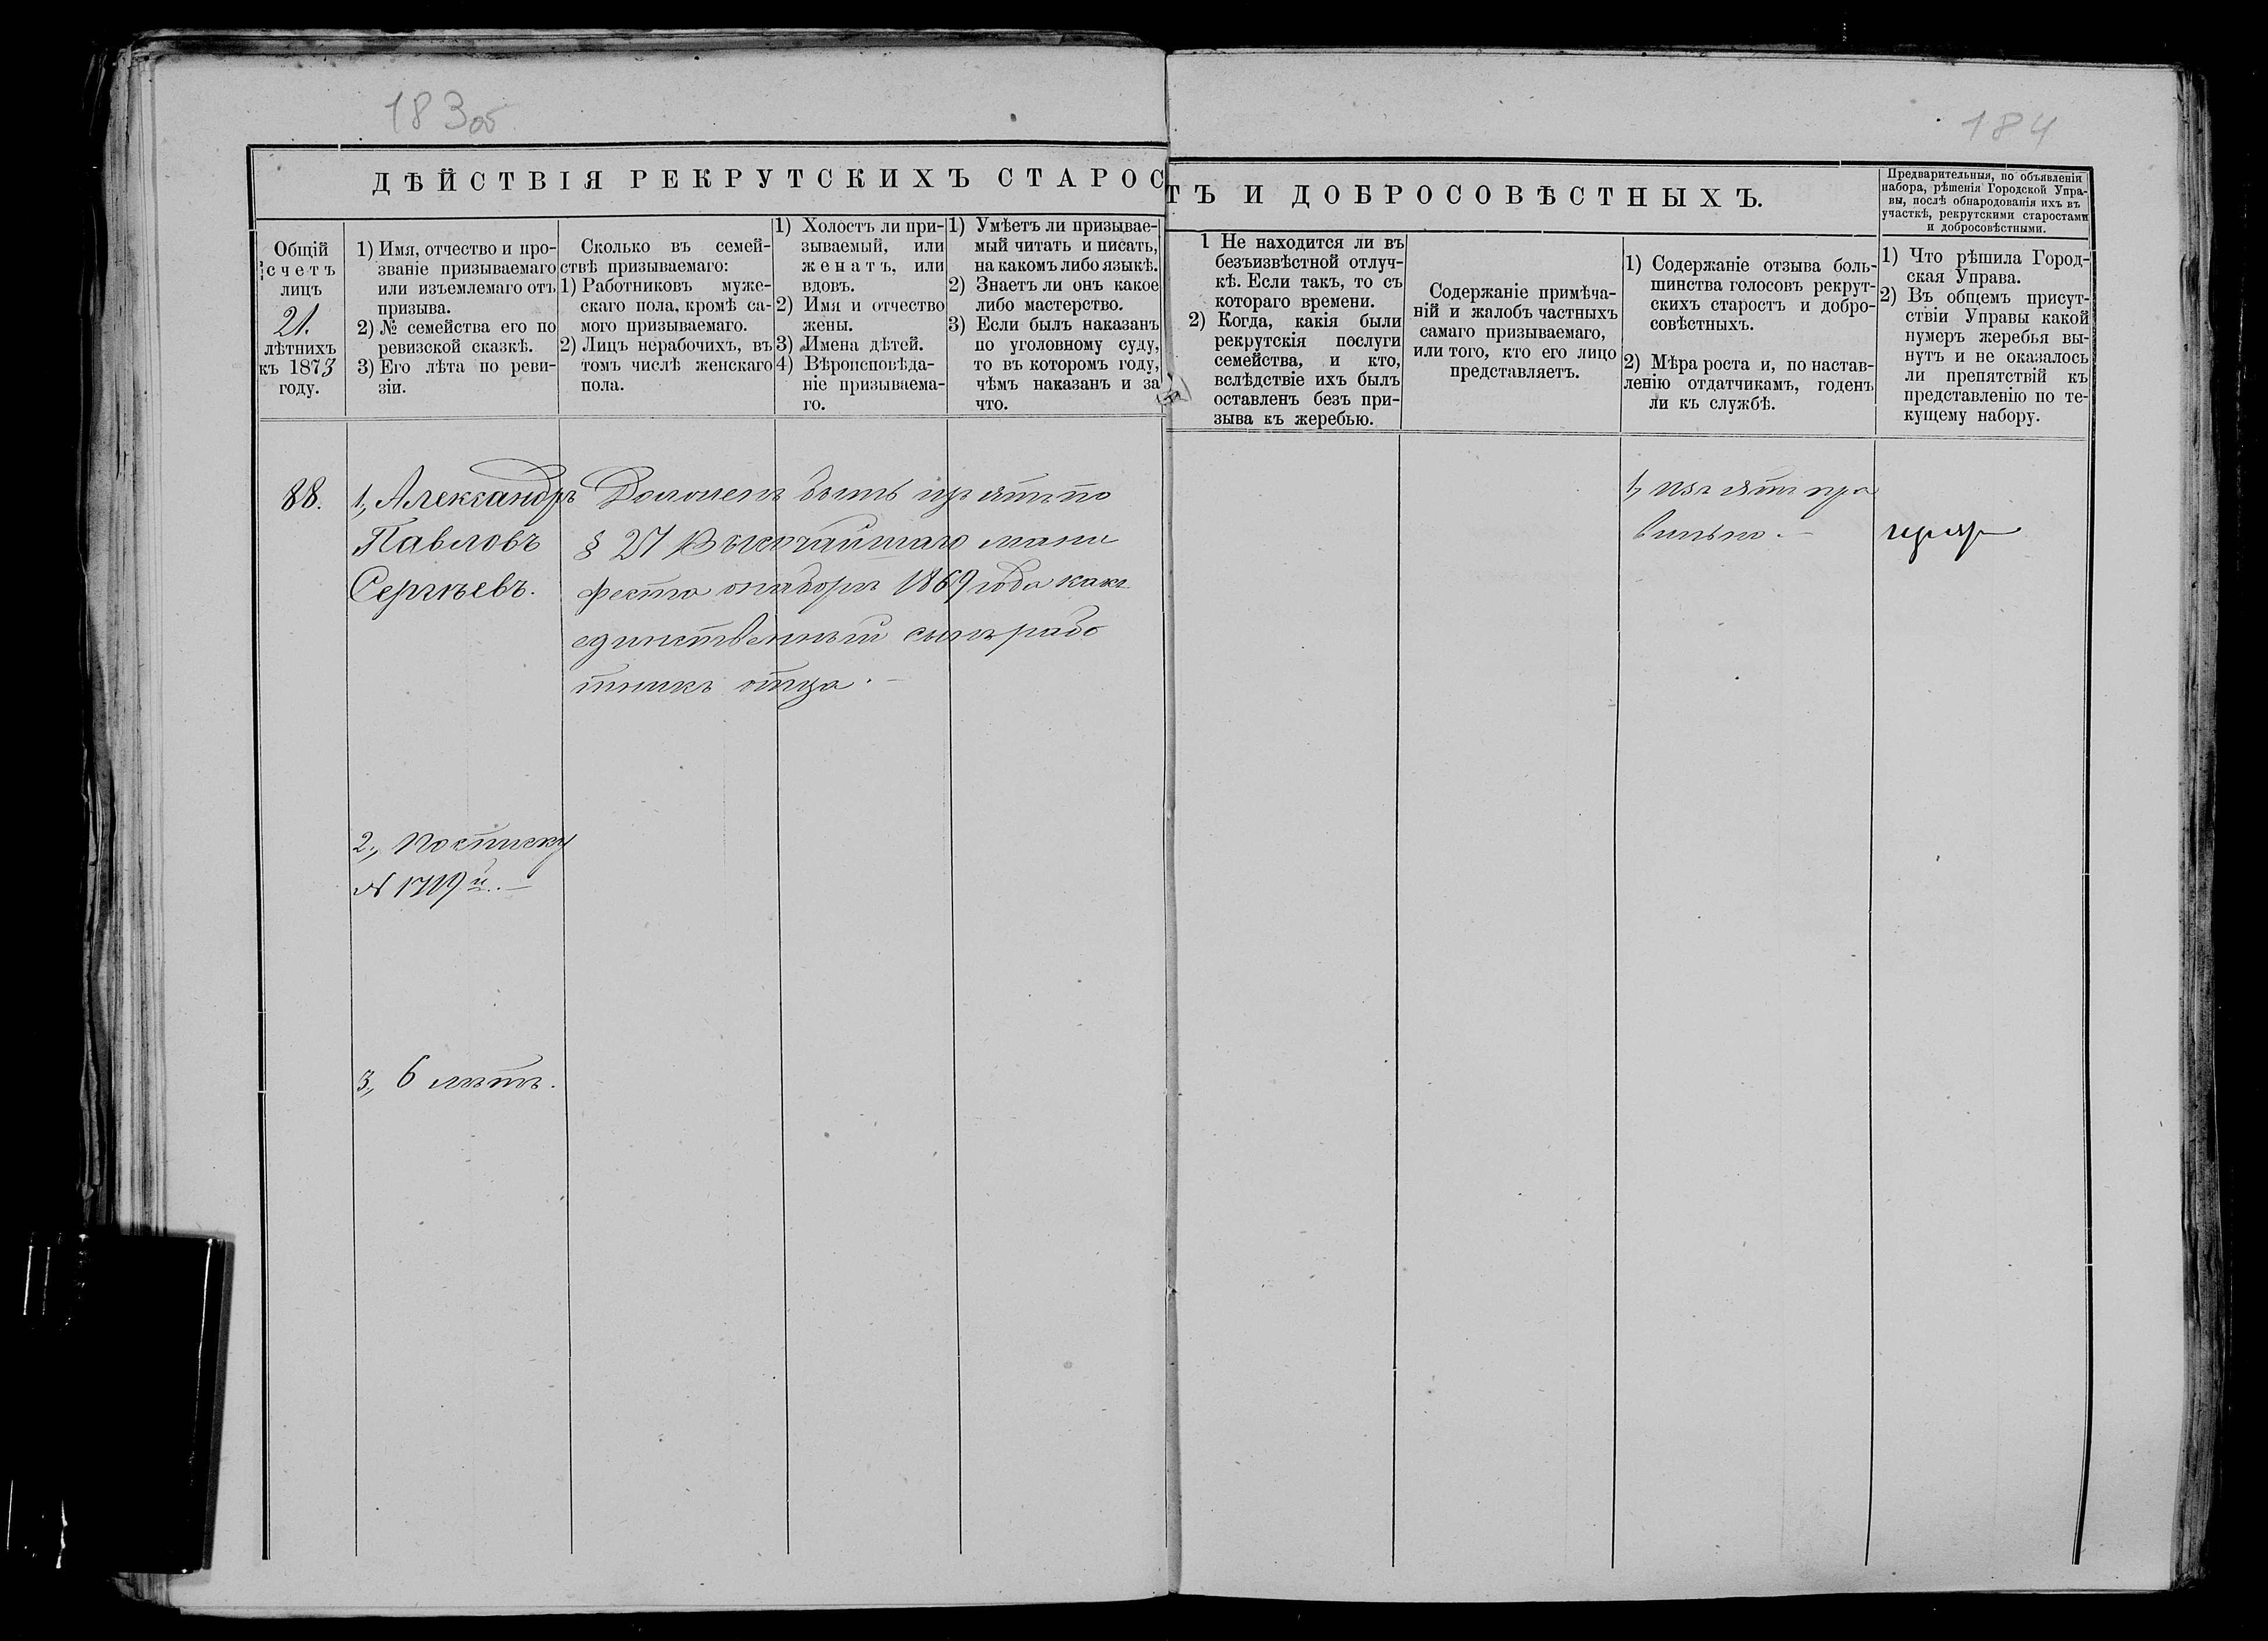 183об
184
ДѢЙСТВІЯ РЕКРУТСКИХЪ СТАРОСТЪ И ДОБРОСОВѢСТНЫХЪ.
Предварительныя, по объявленіи
набора, рѣшенія Городской Упра-
вы, послѣ обнародованія ихъ въ
участкѣ, рекрутскими старостами
и добросовѣстными.
Общій
счетъ
лицъ
21.
лѣтнихъ
къ 1873
году.
1) Имя, отчество и про-
званіе призываемаго
или изъемлемаго отъ
призыва.
2) № семейства его по
ревизской сказкѣ.
3) Его лѣта по реви-
зіи.
Сколько въ семей-
ствѣ призываемаго:
1) Работниковъ муже-
скаго пола, кромѣ са-
мого призываемаго.
2) Лицъ нерабочихъ, въ
томъ числѣ женскаго
пола.
1) Холостъ ли при-
зываемый, или
женатъ, или
вдовъ.
2) Имя и отчество
жены.
3) Имена дѣтей.
4) Вѣроисповѣда-
ніе призываема-
го.
1) Умѣетъ ли призывае-
мый читать и писать,
на какомъ либо языкѣ.
2) Знаетъ ли онъ какое
либо мастерство.
3) Если былъ наказанъ
по уголовному суду,
то въ которомъ году,
чѣмъ наказанъ и за
что.
1 Не находится ли въ
безъизвѣстной отлуч-
кѣ. Если такъ, то съ
котораго времени.
2) Когда, какія были
рекрутскія послуги
семейства, и кто,
вслѣдствіе ихъ былъ
оставленъ безъ при-
зыва къ жеребью.
Содержаніе примѣча-
ній и жалобъ частныхъ
самаго призываемаго,
или того, кто его лицо
представляетъ.
1) Содержаніе отзыва боль-
шинства голосовъ рекрут-
скихъ старостъ и добро-
совѣстныхъ.
2) Мѣра роста и, по настав-
ленію отдатчикамъ, годенъ
ли къ службѣ.
1) Что рѣшила Город-
ская Управа.
2) Въ общемъ присут-
ствіи Управы какой
нумеръ жеребья вы-
нутъ и не оказалось
ли препятствій къ
представленію по те-
кущему набору.
88.
1, Александръ
Павловъ
Сергѣевъ.
2., По списку
№ 1719й.
3., 6 лѣтъ.
Долженъ быть изъятъ по
§ 27 Высочайшаго мани
феста о наборѣ 1869 года какъ
единственный сынъ рабо
тникъ отца.
1, Изъятъ пра
вильно.